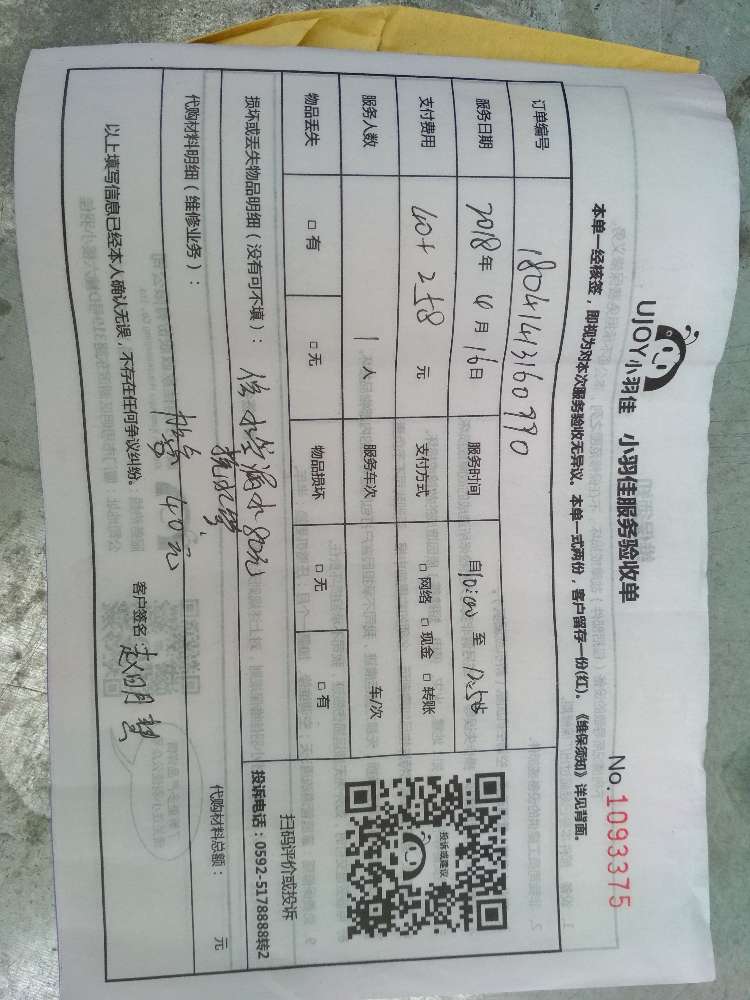 UJOY小羽佳 小羽佳服务验收单
No.1093375
本单一经核签，即视为对本次服务验收无异议。本单一式两份，客户留存一份(红)。《维保须知》详见背面。
订单编号 18041413160990
服务日期 2018年4月16日 服务时间 自10:00至12:58
支付费用 40+258元 支付方式 □网络 □现金 □转账
服务人数 1人 服务车次 车/次
物品丢失 □有 □无 物品损坏 □无 □有
投诉或建议
扫码评价或投诉
投诉电话：0592-5178888转2
损坏或丢失物品明细（没有可不填）： 水管漏水80元
代购材料明细（维修业务）： 40元
代购材料总额： 元
以上填写信息已经本人确认无误，不存在任何争议纠纷。 客户签名：赵明慧